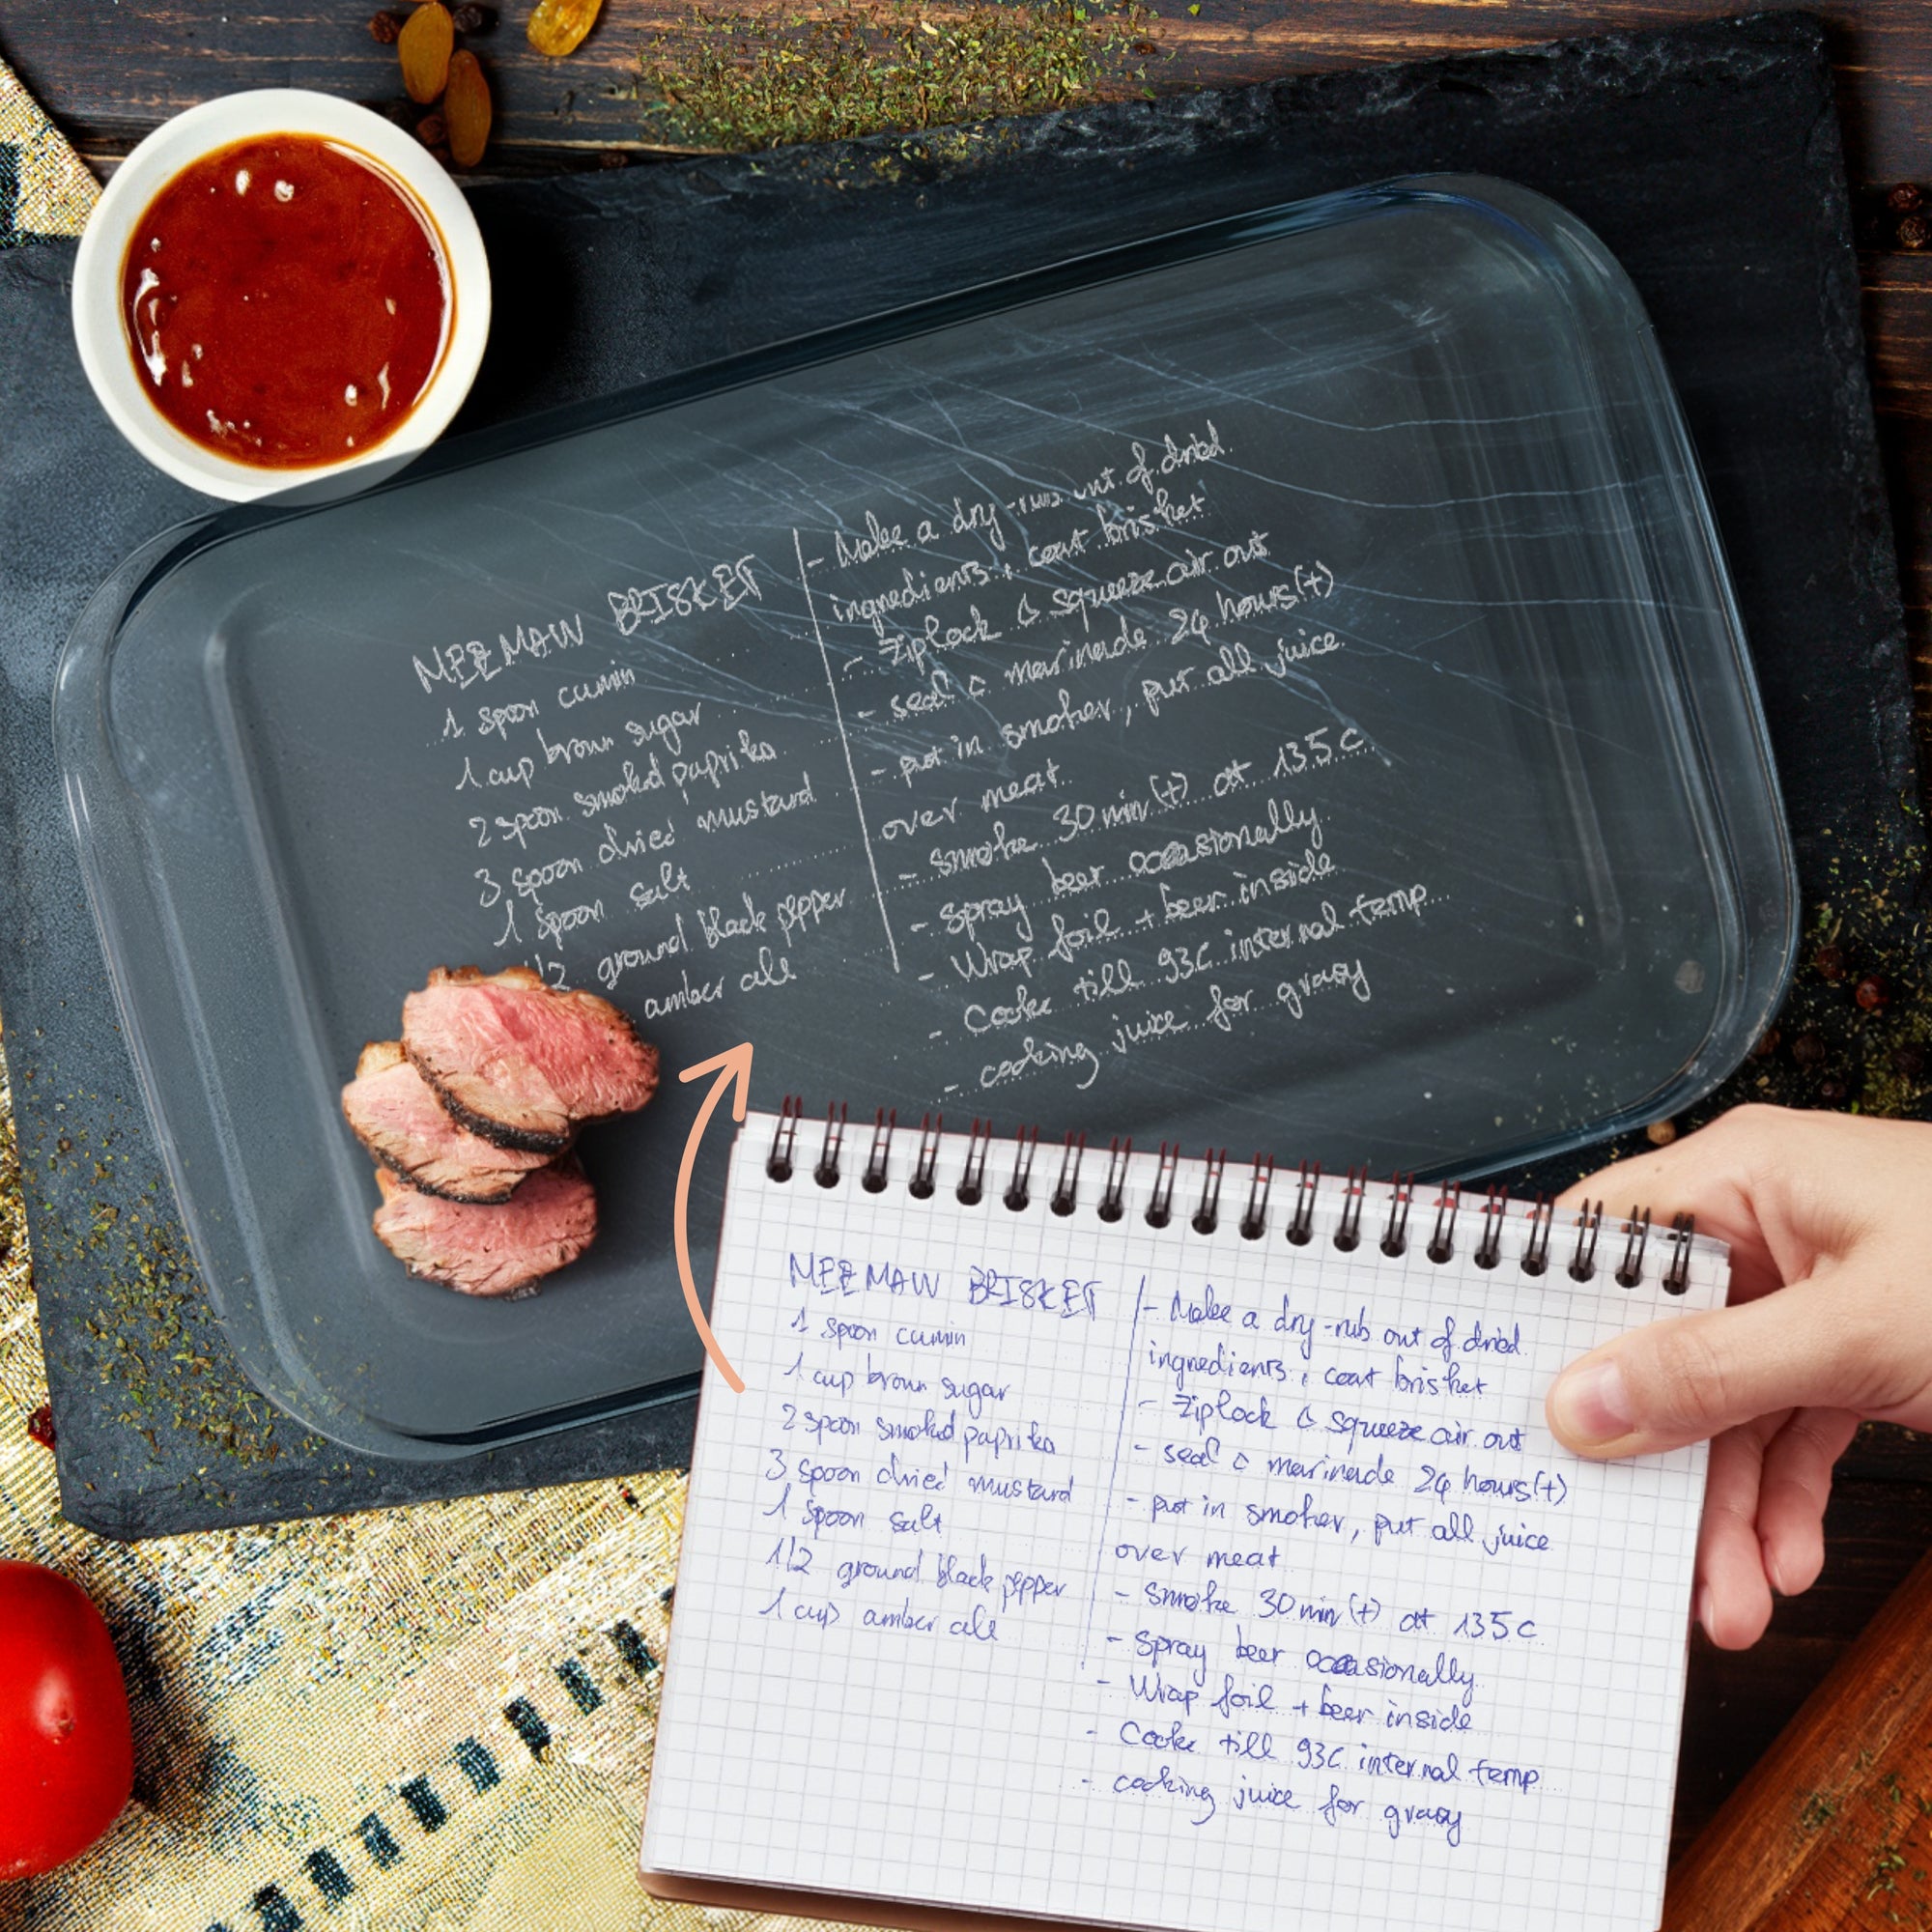 MEEMAW BRISKET
1 spoon cumin
1 cup brown sugar
2 spoon smoked paprika
3 spoon dried mustard
1 spoon salt
1/2 ground black pepper
amber ale
- Make a dry-rub out of dried
ingredients, coat brisket
- Ziplock & squeeze air out
- seal & marinade 24 hours(+)
- put in smoker, put all juice
over meat
- smoke 30 min(+) at 135 C
- Spray beer occasionally
- Wrap foil + beer inside
- Cooke till 93C internal temp
- cooking juice for gravy
MEEMAW BRISKET
1 spoon cumin
1 cup brown sugar
2 spoon smoked paprika
3 spoon dried mustard
1 spoon salt
1/2 ground black pepper
1 cup amber ale
- Make a dry-rub out of dried
ingredients, coat brisket
- Ziplock & squeeze air out
- seal & marinade 24 hours(+)
- put in smoker, put all juice
over meat
- smoke 30 min(+) at 135 C
- Spray beer occasionally
- Wrap foil + beer inside
- Cooke till 93C internal temp
- cooking juice for gravy